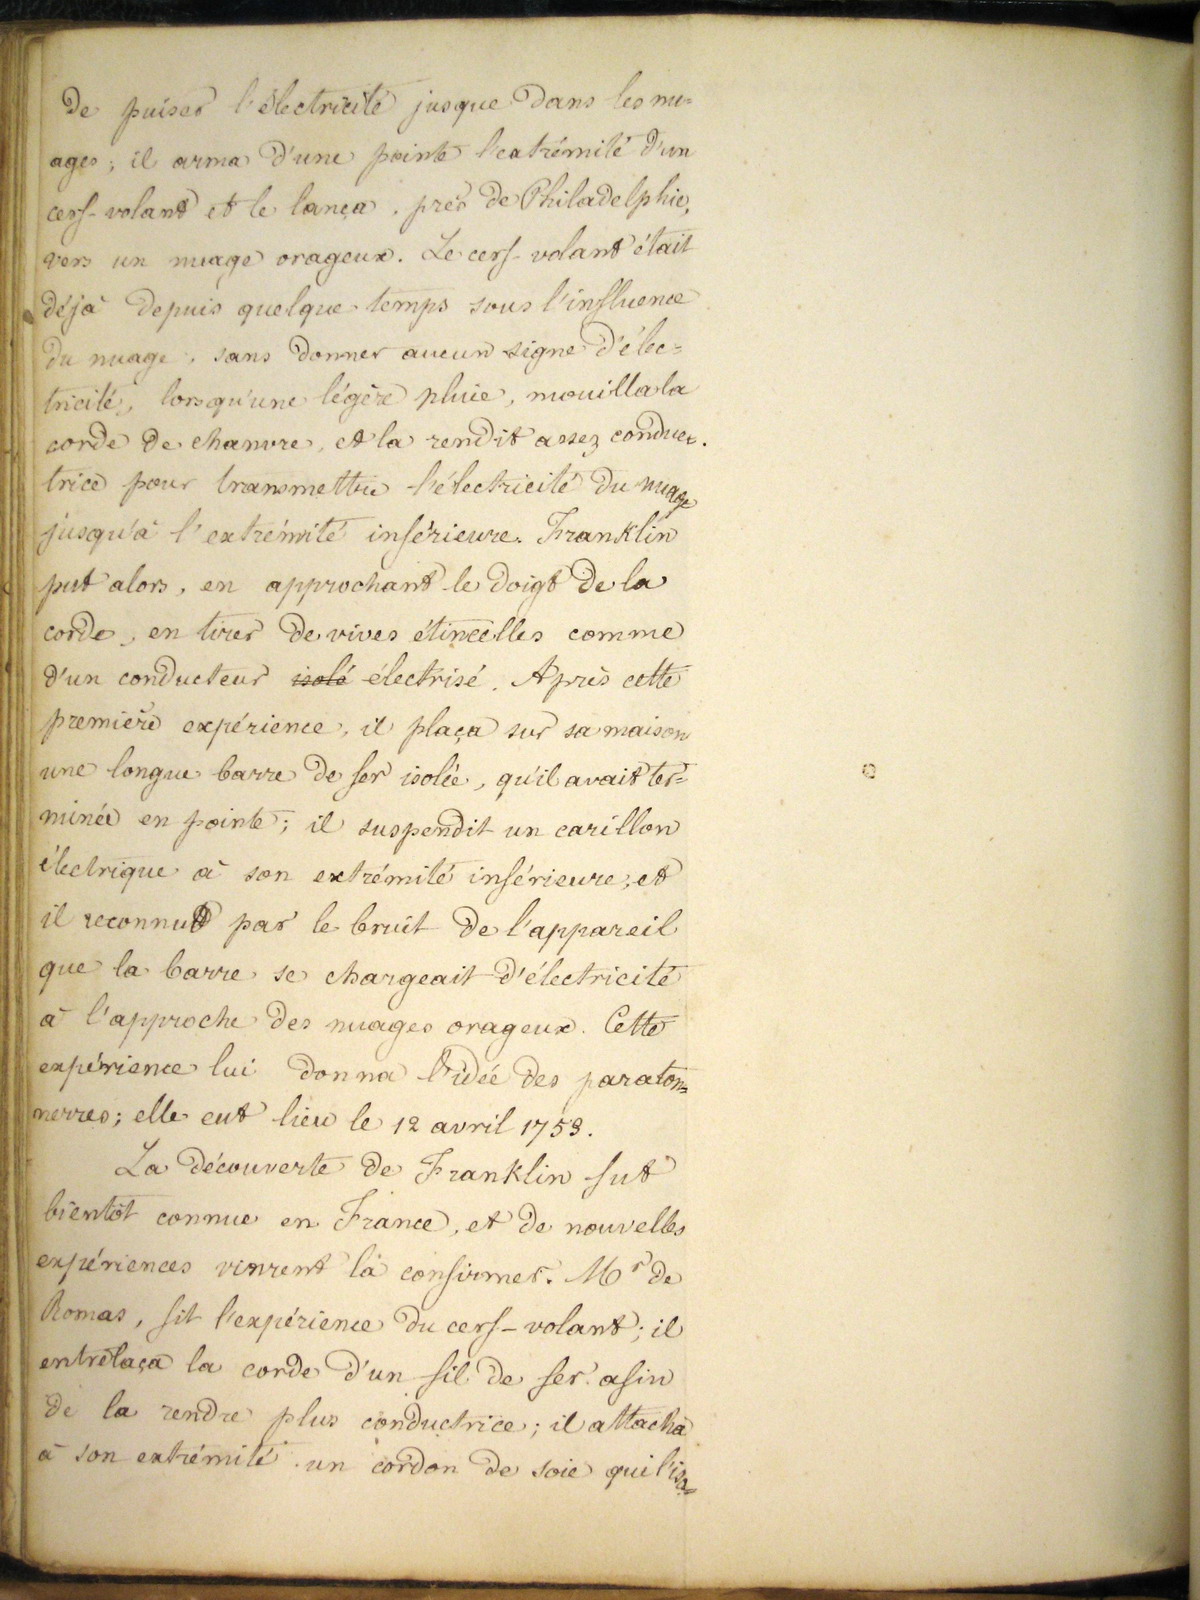 de puiser l'électricité jusque dans les nu=
ages; il arma d'une pointe l'extrémité d'un
cerf-volant et le lança, près de Philadelphie,
vers un nuage orageux. Le cerf-volant était
déjà depuis quelque temps sous l'influence
du nuage, sans donner aucun signe d'élec=
tricité, lorsqu'une légère pluie, mouilla la
corde de chanvre, et la rendit assez conduc=
trice pour transmettre l'électricité du nuage
jusqu'à l'extrémité inférieure. Franklin
put alors, en approchant le doigt de la
corde, en tirer de vives étincelles comme
d'un conducteur isolé électrisé. Après cette
première expérience, il plaça sur sa maison
une longue barre de fer isolée, qu'il avait ter=
minée en pointe; il suspendit un carillon
électrique à son extrémité inférieure, et
il reconnut par le bruit de l'appareil
que la barre se chargeait d'électricité
à l'approche des nuages orageux. Cette
expérience lui donna l'idée des paraton=
nerres; elle eut lieu le 12 avril 1753.
La découverte de Franklin fut
bientôt connue en France, et de nouvelles
expériences vinrent la confirmer. Mr de
Romas, fit l'expérience du cerf-volant; il
entrelaça la corde d'un fil de fer afin
de la rendre plus conductrice; il attacha
à son extrémité un cordon de soie qui l'iso=